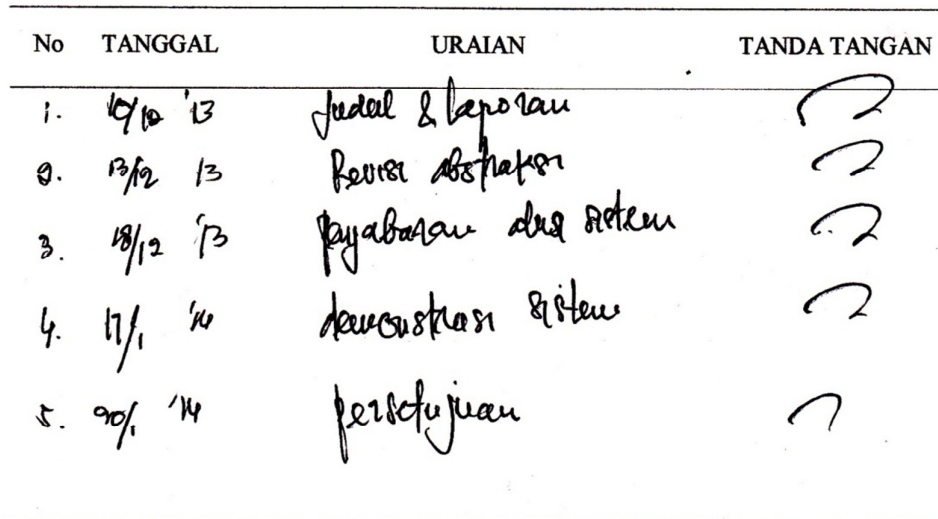 No TANGGAL URAIAN TANDA TANGAN
1. 10/12 '13 Judul & laporan
2. 13/12 13 Revisi abstraksi
3. 18/12 '13 sistem
4. 17/1 '14 demonstrasi sistem
5. 20/1 '14 persetujuan